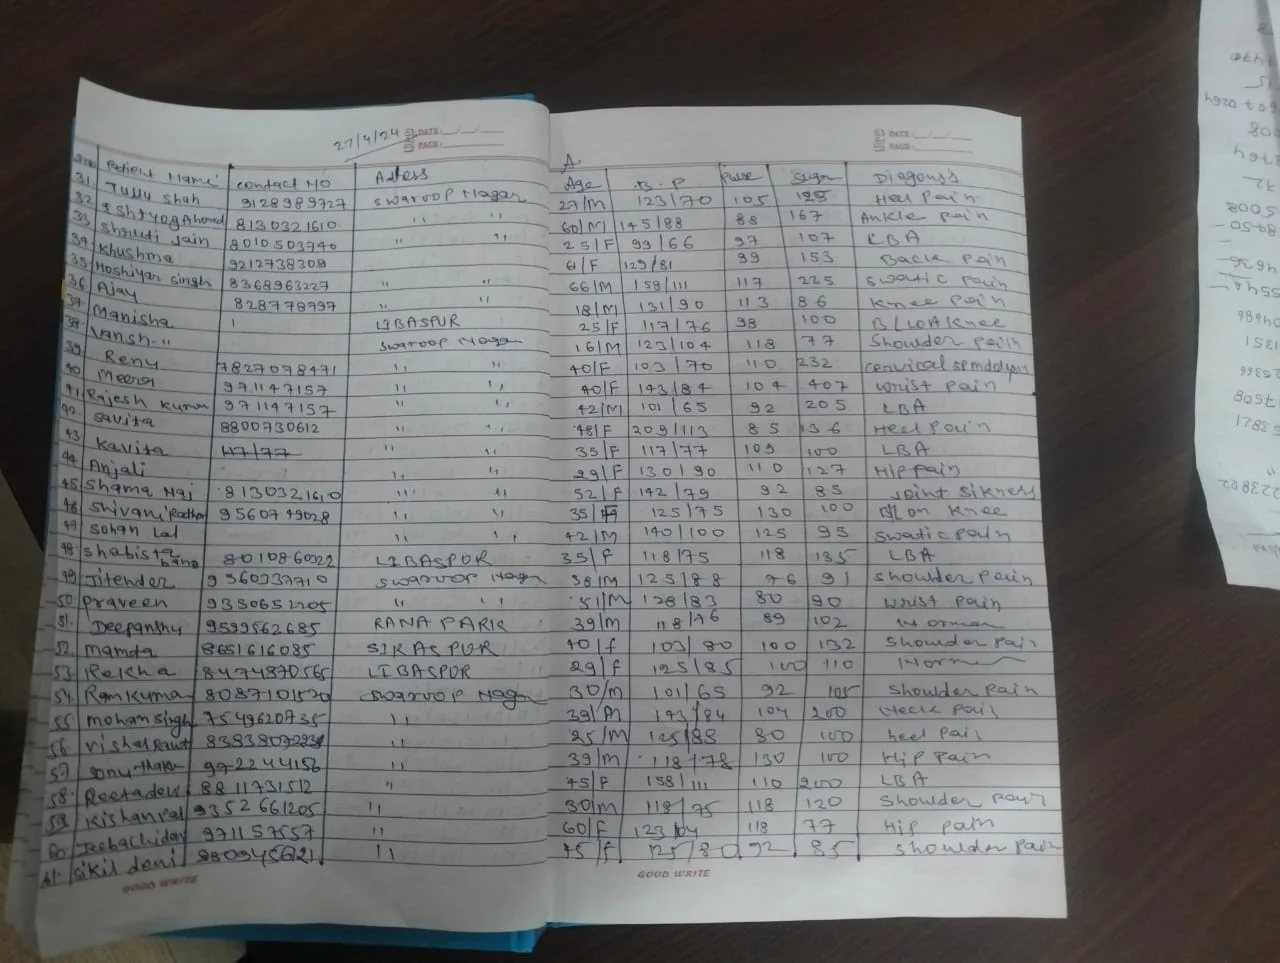 27/4/24 DATE: PAGE:
DATE: PAGE:
A
Patient Name contact NO Adess Age B.P Pulse Sugar Diagons
31. Tullu Shah 9128989727 Swaroop Nagar 27/M 123/70 105 125 Heel Pain
32. Ishtyaq Ahmad 8130321610 " " 60/M 145/88 88 167 Ankle pain
33. Shruti Jain 8010503740 " " 25/F 99/66 97 107 LBA
34. Khushma 9212738309 61/F 129/81 99 153 Back pain
35. Hoshiyar singh 8368963227 " " 66/M 158/111 117 225 Swatic pain
36. Ajay 828778797 " " 18/M 131/90 113 86 Knee pain
37. Manisha LIBASPUR 25/F 117/76 98 100 B/L OA Knee
38. Vansh " Swaroop Nagar 16/M 123/104 118 77 Shoulder pain
39. Renu 7827078471 " " 40/F 103/70 110 232 cervical
40. Meera 971147157 " " 40/F 143/84 104 407 Wrist pain
41. Rajesh Kumar 971147157 " " 42/M 101/65 92 205 LBA
42. Savita 8800730612 " " 48/F 209/113 85 136 Heel Pain
43. Kavita " " 35/F 117/77 109 100 LBA
44. Anjali " " 29/F 130/90 110 127 Hip pain
45. Shama 8130321610 " " 52/F 142/79 92 85 Joint Sikness
46. Shivani 9560749028 " " 35/F 125/75 130 100 Knee
47. Sohan Lal " " 42/M 140/100 125 95 Swatic pain
48. Shabista bano 801086022 LIBASPUR 35/F 118/75 118 135 LBA
49. Jitender Swaroop Nagar 38/M 125/88 76 91 Shoulder pain
50. Praveen " " 51/M 128/83 80 90 Wrist pain
51. Deepanshu 9599562685 RANA PARK 39/M 118/76 89 102 Normal
52. Mamta 8651616085 SIRASPUR 40/f 103/80 100 132 Shoulder pain
53. Rekha 8474870565 LIBASPUR 29/f 125/85 100 110 Normal
54. Ramkumar Swaroop Nagar 30/M 101/65 92 105 Shoulder pain
55. Mohan Singh 7549620735 " 39/M 143/84 104 200 Neck pain
56. Vishal Raut " 25/M 125/88 80 100 heel pain
57. Sonu 9922244156 " 39/M 118/78 130 100 Hip pain
58. Reetadevi 8811731512 " 45/F 158/111 110 200 LBA
59. Kishanpal 9352661205 " 30/M 118/75 118 120 Shoulder pain
60. 971157557 " 60/F 118 77 Hip pain
61. " 45/f 125/80 92 85 Shoulder pain
GOOD WRITE GOOD WRITE